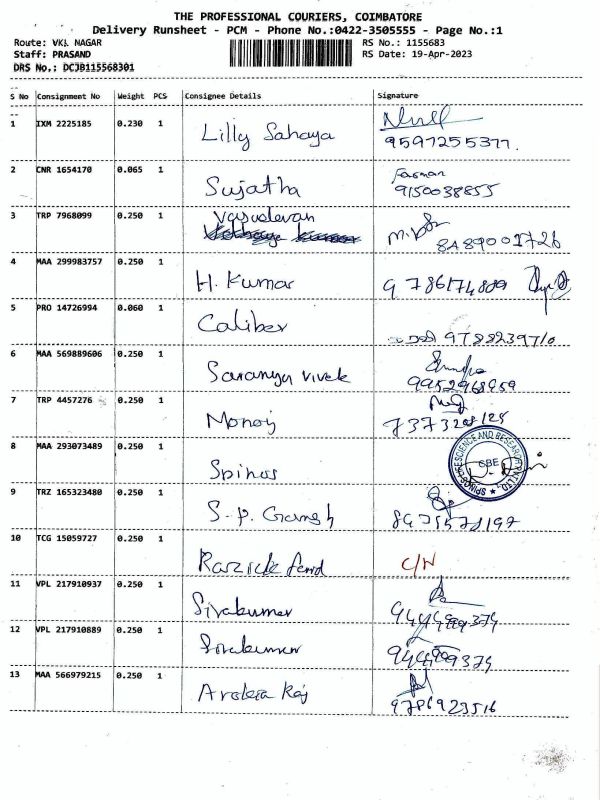 THE PROFESSIONAL COURIERS, COIMBATORE
Delivery Runsheet - PCM - Phone No.:0422-3505555 - Page No.:1
Route: VKL NAGAR RS No.: 1155683
Staff: PRASAND RS Date: 19-Apr-2023
DRS No.: DCJB115568301
S No Consignment No Weight PCS Consignee Details Signature
1 IXM 2225185 0.230 1 Lilly Sahaya
9597255377.
2 CNR 1654170 0.065 1 Sujatha
9150038855
3 TRP 7968099 0.250 1 Vasudevan
8489001726
4 MAA 299983757 0.250 1 H. Kumar 9786174809
5 PRO 14726994 0.060 1 Caliber 9788239710
6 MAA 569889606 0.250 1 Saranya vivek
9952968959
7 TRP 4457276 0.250 1 Manoj
8 MAA 293073489 0.250 1 Spinos
CBE
9 TRZ 165323480 0.250 1 S. P. Ganesh
10 TCG 15059727 0.250 1 C/N
11 VPL 217910937 0.250 1 Sivakumar
12 VPL 217910889 0.250 1 Sivakumar
13 MAA 566979215 0.250 1 Raj
9786923516